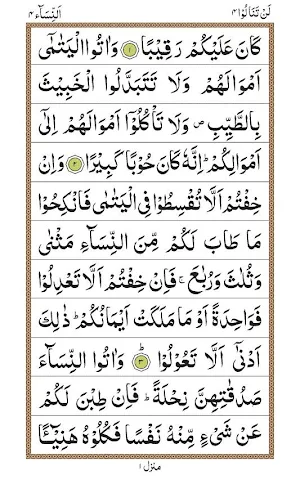 لَنْ تَنَالُوْا ٤ اَلنِّسَآء ٤
كَانَ عَلَيْكُمْ رَقِيْبًا ١ وَاٰتُوا الْيَتٰمٰٓى
اَمْوَالَهُمْ وَلَا تَتَبَدَّلُوا الْخَبِيْثَ
بِالطَّيِّبِ ص وَلَا تَاْكُلُوْٓا اَمْوَالَهُمْ اِلٰٓى
اَمْوَالِكُمْ ؕ اِنَّهٗ كَانَ حُوْبًا كَبِيْرًا ٢ وَاِنْ
خِفْتُمْ اَلَّا تُقْسِطُوْا فِى الْيَتٰمٰى فَانْكِحُوْا
مَا طَابَ لَكُمْ مِّنَ النِّسَآءِ مَثْنٰى
وَثُلٰثَ وَرُبٰعَ ۚ فَاِنْ خِفْتُمْ اَلَّا تَعْدِلُوْا
فَوَاحِدَةً اَوْ مَا مَلَكَتْ اَيْمَانُكُمْ ؕ ذٰلِكَ
اَدْنٰٓى اَلَّا تَعُوْلُوْا ؕ ٣ وَاٰتُوا النِّسَآءَ
صَدُقٰتِهِنَّ نِحْلَةً ؕ فَاِنْ طِبْنَ لَكُمْ
عَنْ شَىْءٍ مِّنْهُ نَفْسًا فَكُلُوْهُ هَنِيْٓـًٔا
منزل ١